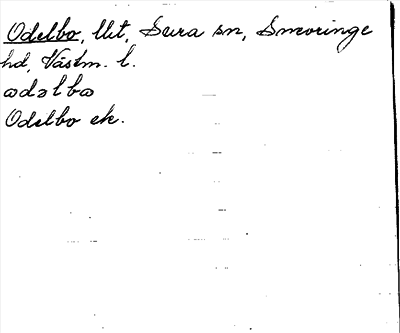 Odelbo, llt, Sura sn, Snevringe
hd, Västm. l.
ωdəlbω
Odelbo ek.